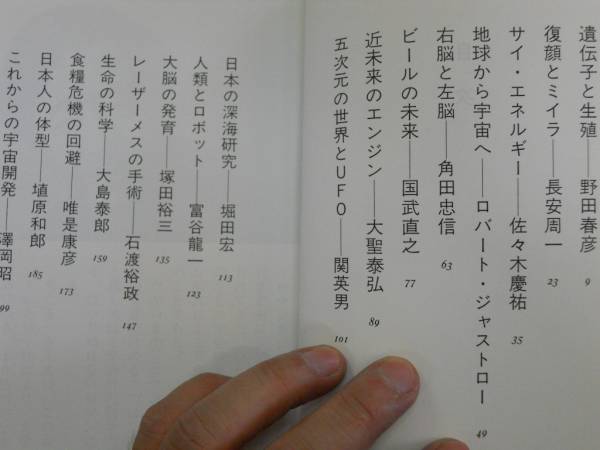 遺伝子と生殖——野田春彦 9
復顔とミイラ——長安周一 23
サイ・エネルギー——佐々木慶祐 35
地球から宇宙へ——ロバート・ジャストロー 49
右脳と左脳——角田忠信 63
ビールの未来——国武直之 77
近未来のエンジン——大聖泰弘 89
五次元の世界とUFO——関英男 101
日本の深海研究——堀田宏 113
人類とロボット——富谷龍一 123
大脳の発育——塚田裕三 135
レーザーメスの手術——石渡裕政 147
生命の科学——大島泰郎 159
食糧危機の回避——唯是康彦 173
日本人の体型——埴原和郎 185
これからの宇宙開発——澤岡昭 99